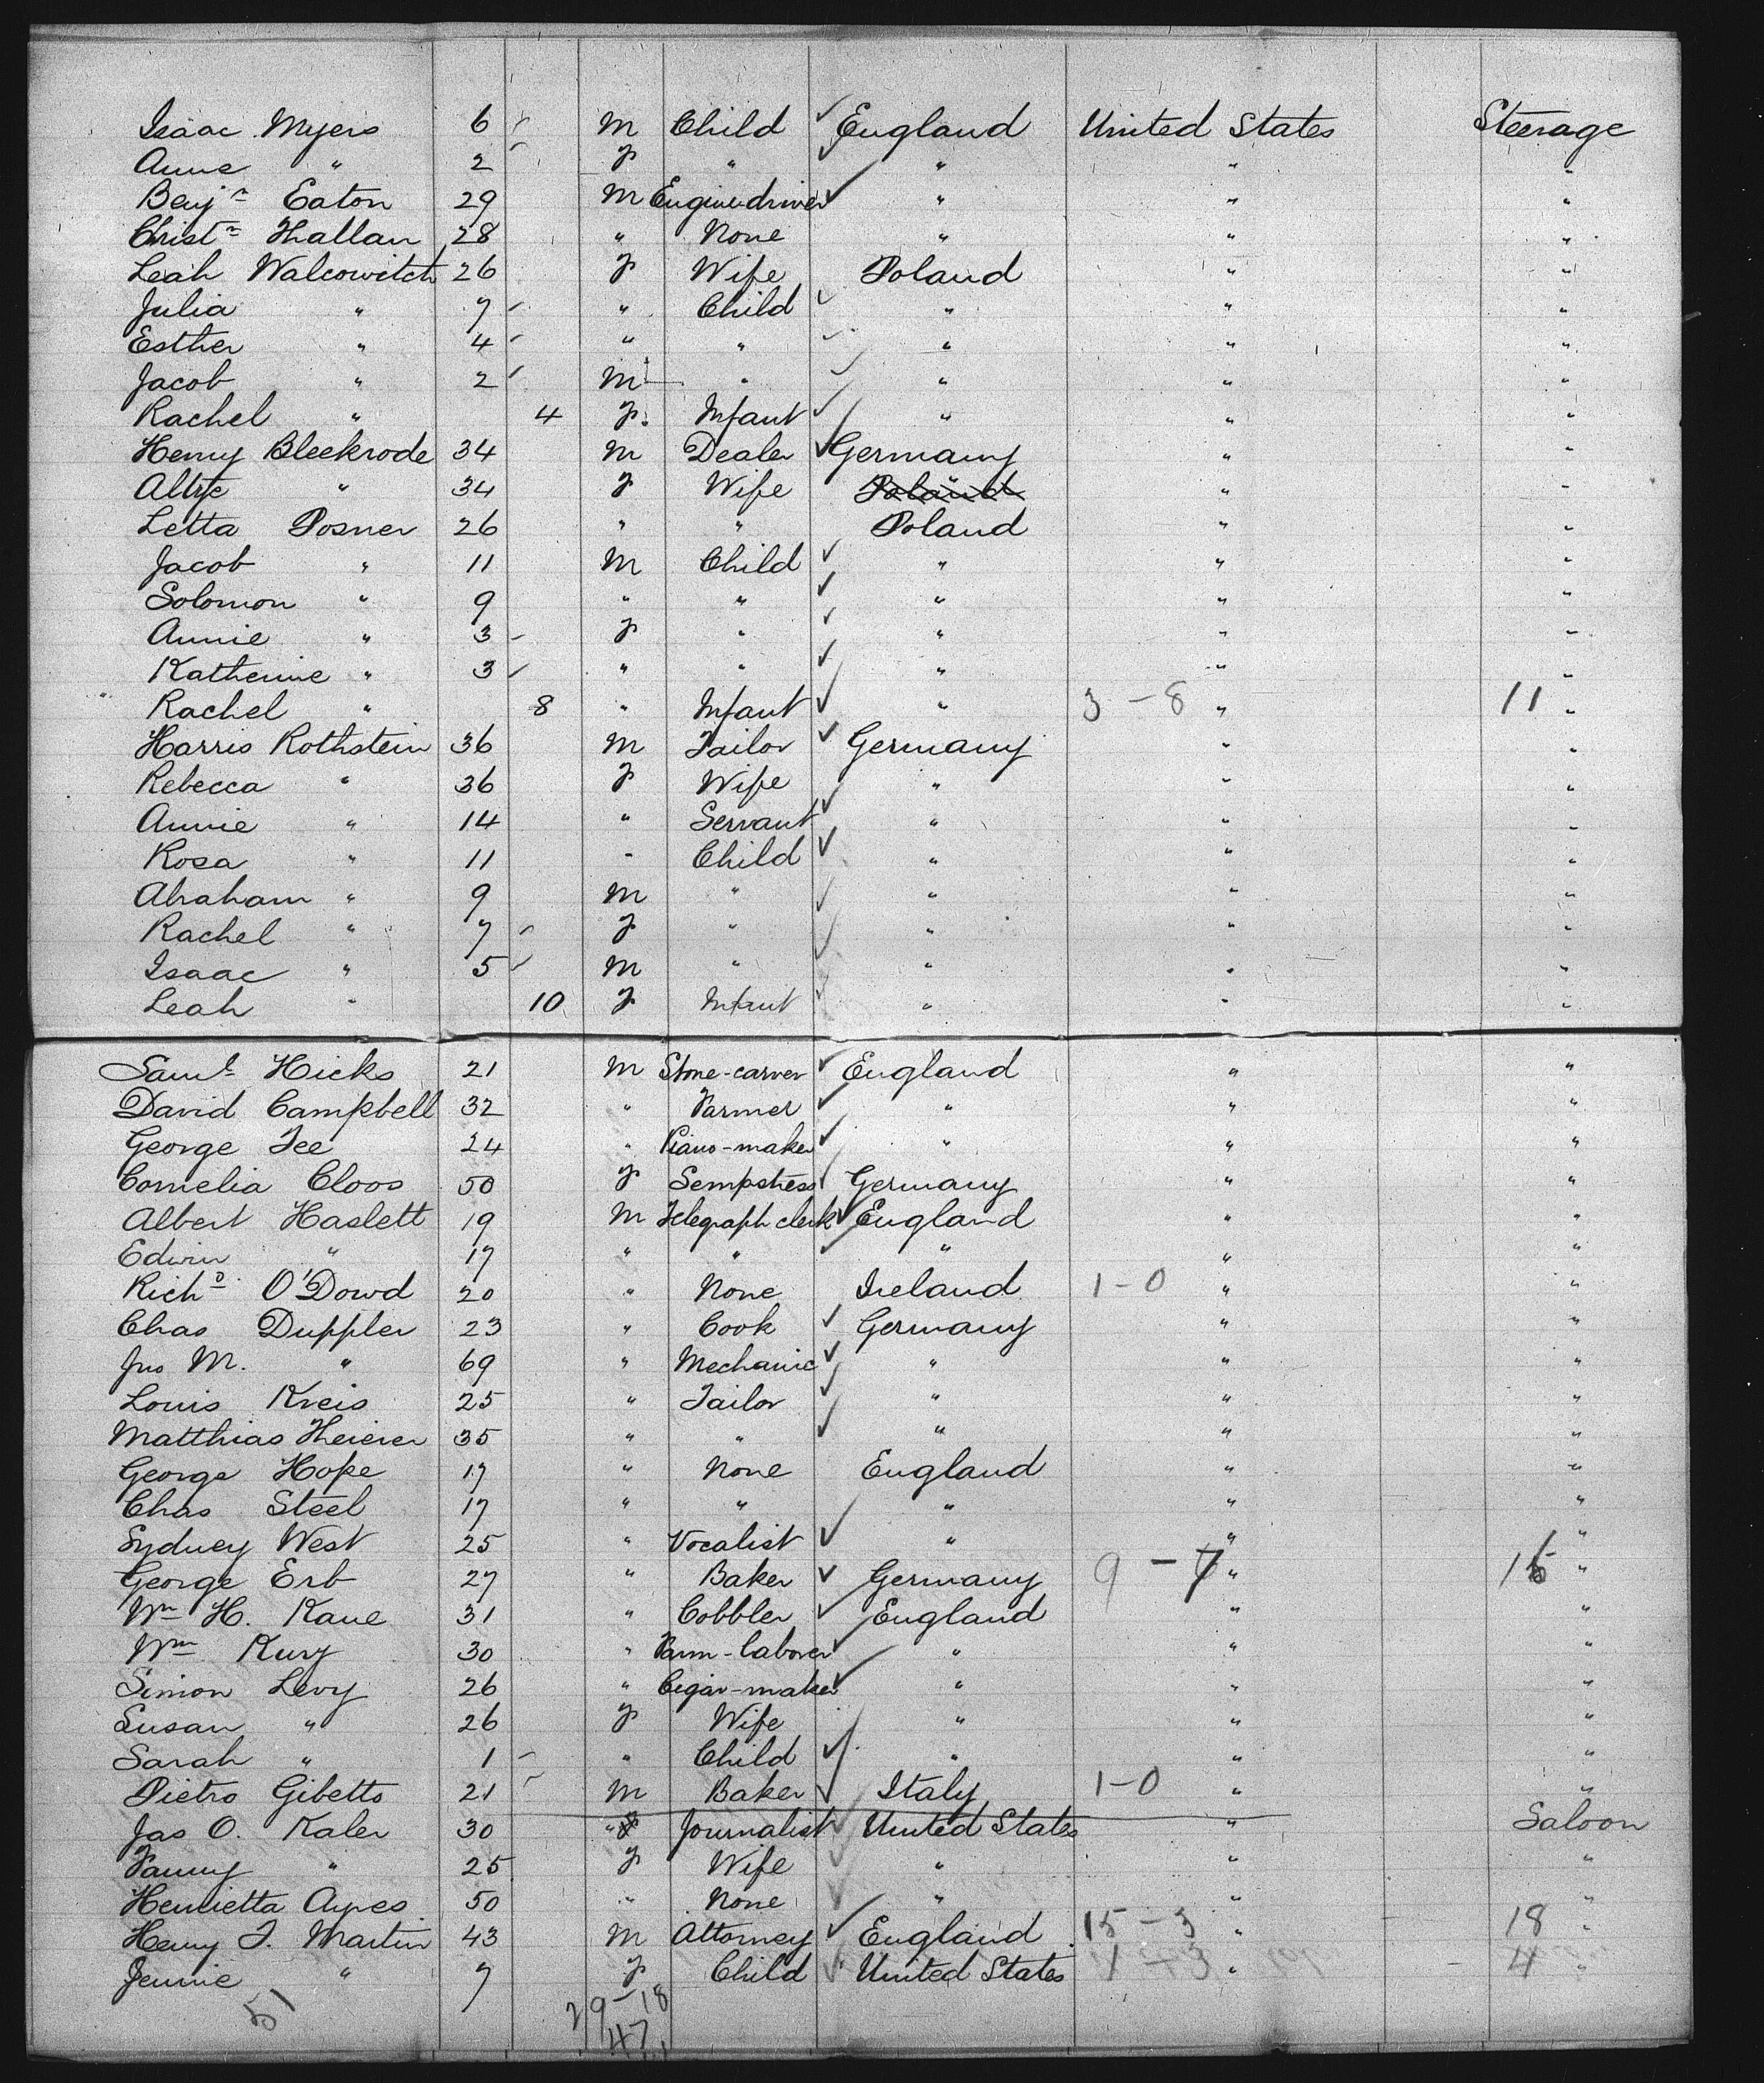 Isaac Myers 6 M Child England United States Steerage
Anne " 2 F " " " "
Benjn Eaton 29 M Engine-driver " " "
Christr Hallan 28 " None " " "
Leah Walcowitch 26 F Wife Poland " "
Julia " 7 " Child " " "
Esther " 4 " " " " "
Jacob " 2 M " " " "
Rachel " 4 F. Infant " " "
Henry Bleekrode 34 M Dealer Germany " "
Altje " 34 F Wife Poland " "
Letta Posner 26 " " Poland " "
Jacob " 11 M Child " " "
Solomon " 9 " " " " "
Annie " 3 F " " " "
Katherine " 3 " " " " "
Rachel " 8 " Infant " 3-8 " 11 "
Harris Rothstein 36 M Tailor Germany " "
Rebecca " 36 F Wife " " "
Annie " 14 " Servant " " "
Rosa " 11 " Child " " "
Abraham " 9 M " " " "
Rachel " 7 F " " " "
Isaac " 5 M " " " "
Leah " 10 F Infant " " "
Saml Hicks 21 M Stone-carver England " "
David Campbell 32 " Farmer " " "
George Tee 24 " Piano-maker " " "
Cornelia Cloos 50 F Sempstress Germany " "
Albert Haslett 19 M Telegraph clerk England " "
Edwin " 17 " " " " "
Richd O'Dowd 20 " None Ireland 1-0 " "
Chas Duppler 23 " Cook Germany " "
Jno M. " 69 " Mechanic " " "
Louis Kreis 25 " Tailor " " "
Matthias Heierer 35 " " " " "
George Hope 17 " None England " "
Chas Steel 17 " " " " "
Sydney West 25 " Vocalist " " "
George Erb 27 " Baker Germany 9-7 " "
Wm H. Kane 31 " Cobbler England " "
Wm Kury 30 " Farm-laborer " " "
Simon Levy 26 " Cigar-maker " " "
Susan " 26 F Wife " " "
Sarah " 1 " Child " " "
Pietro Gibetto 21 M Baker Italy 1-0 " "
Jas O. Kaler 30 " Journalist United States " Saloon
Fanny " 25 F Wife " " "
Henrietta Ayres 50 " None " " "
Henry T. Martin 43 M Attorney England 15-3 " 18 "
Jennie " 7 F Child United States " 4 "
51 29-18
47